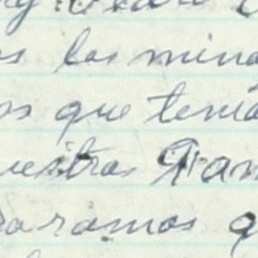 s los mina
os que tenía
uestras Fam
aramos q